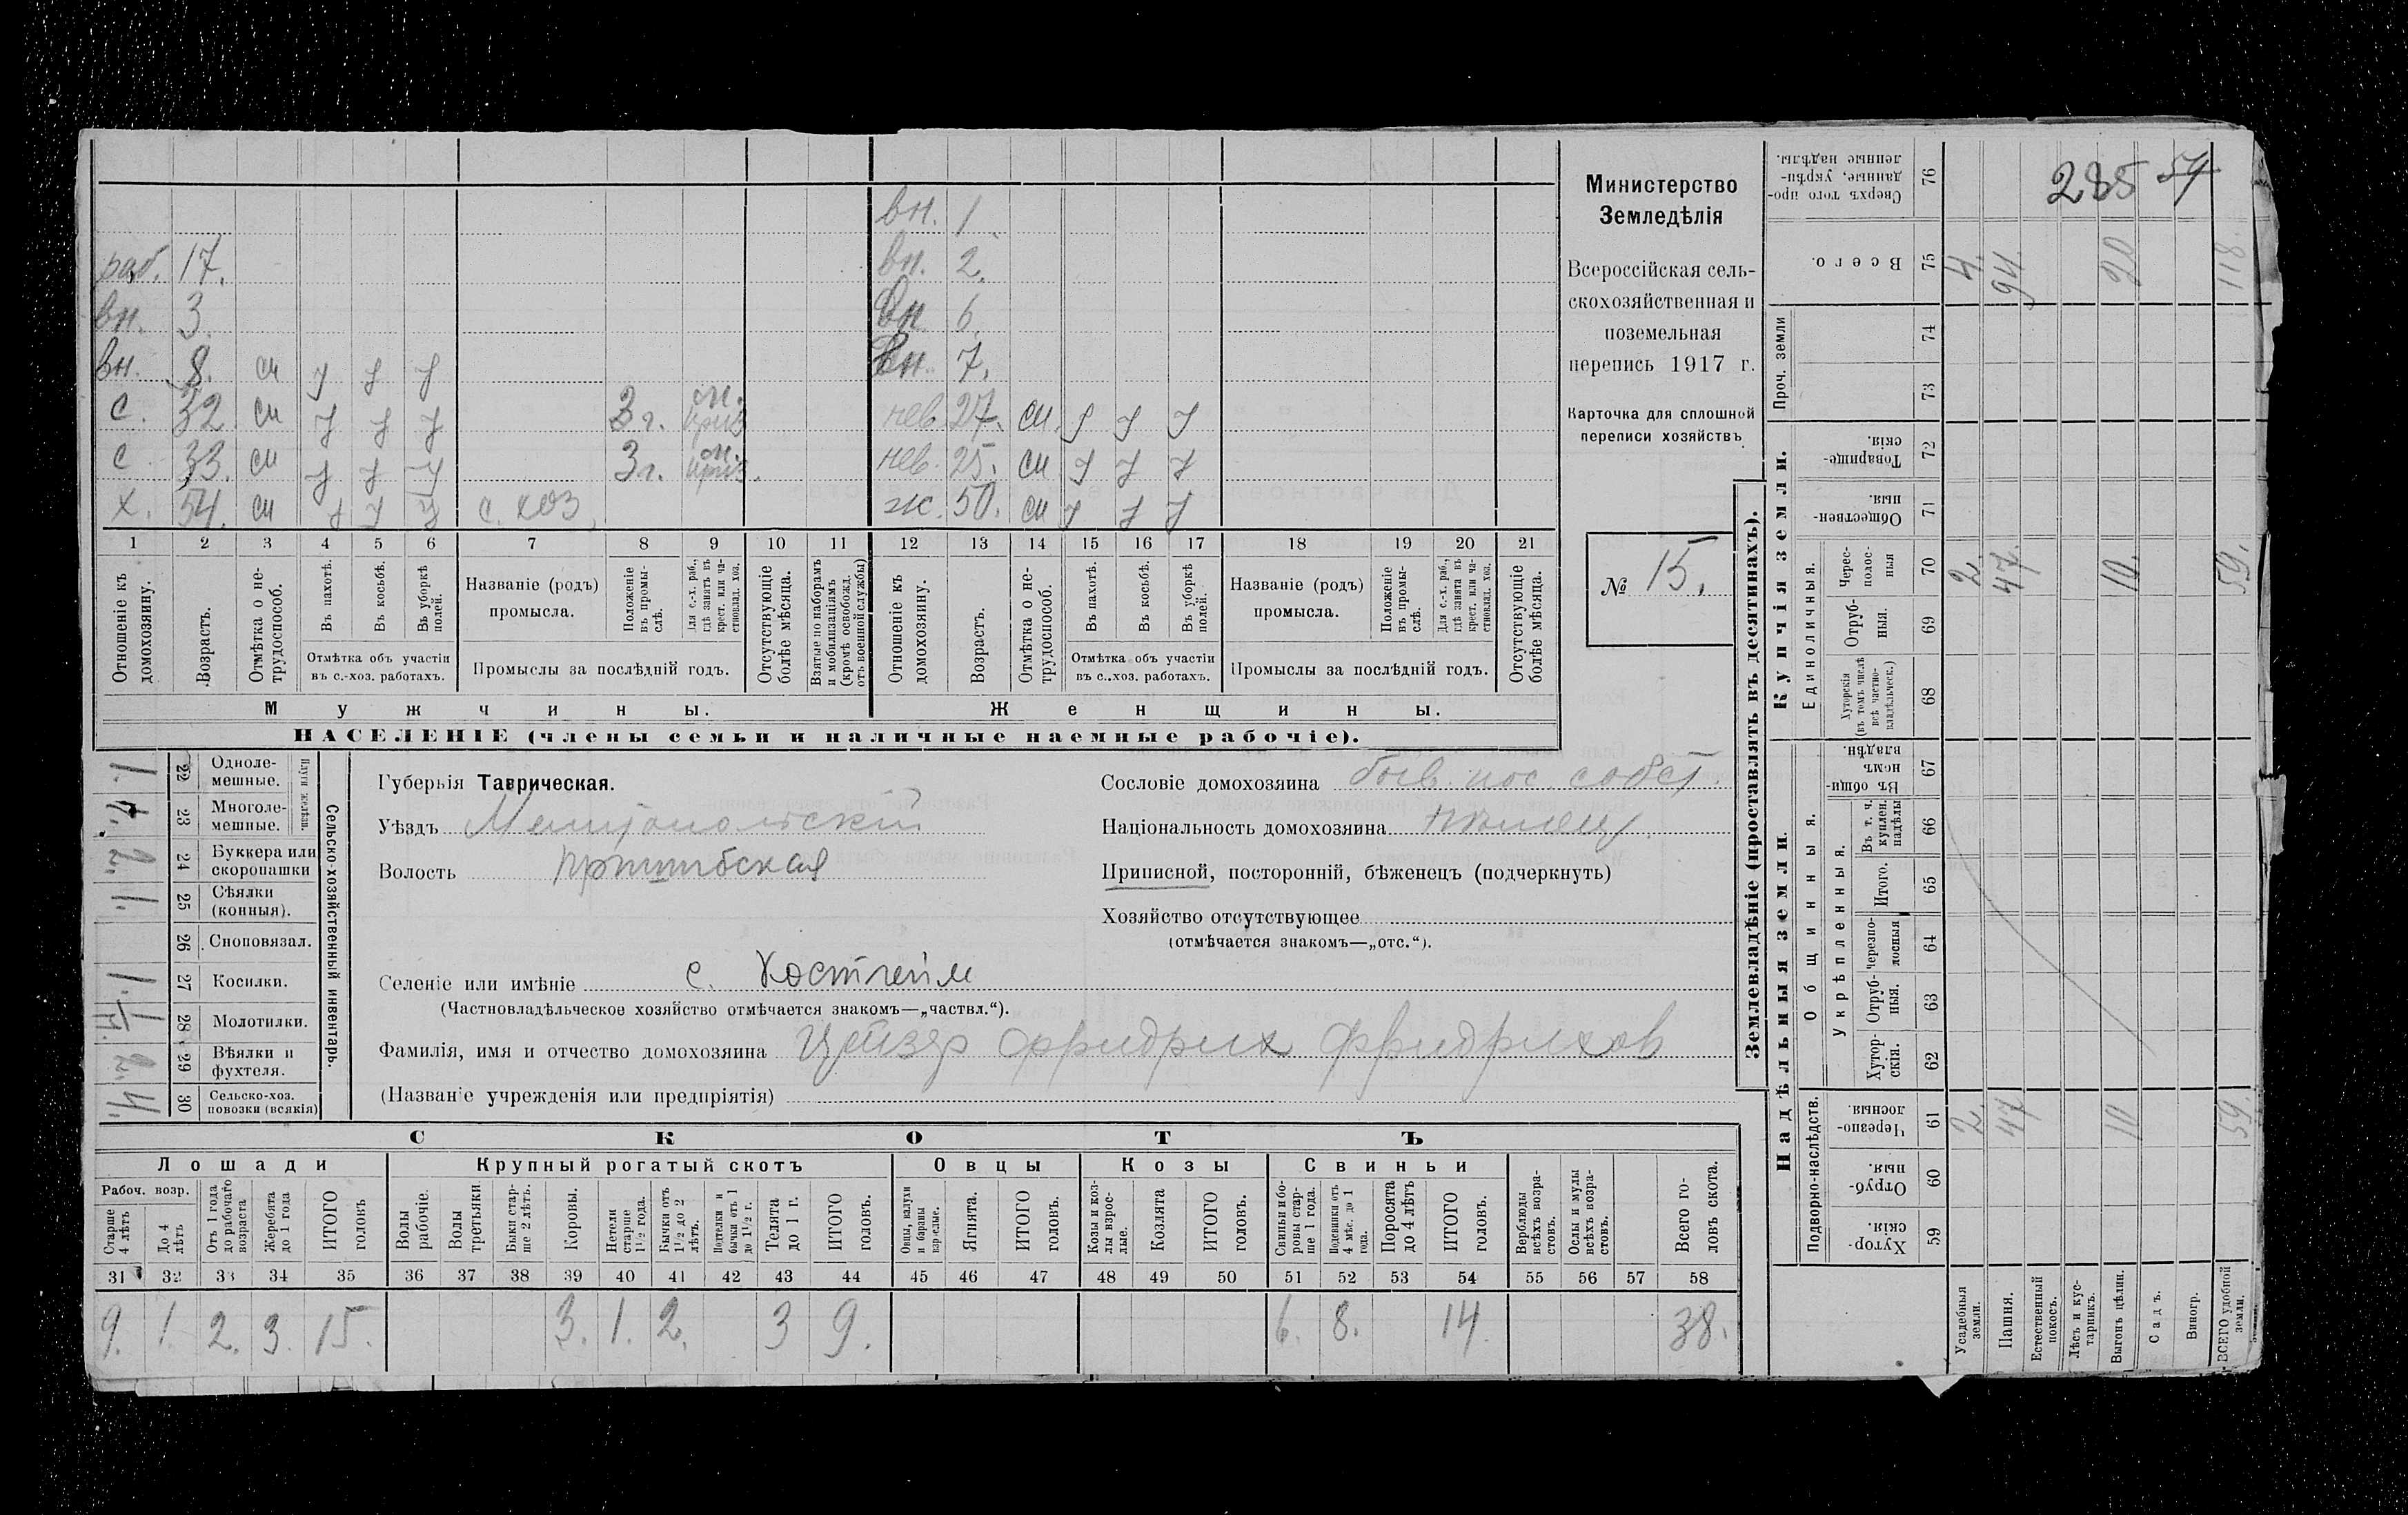 вн. 1.
раб. 17. вн. 2.
вн. 3. вн. 6.
вн. 8. см у у у вн. 7.
с. 32 см у у у 3 г. нев 27. см. у у у
с 33. см у у у 3 г. нев. 25. см у у у
х. 54. см у у у с. хоз. ж. 50. см у у у
1 2 3 4 5 6 7 8 9 10 11 12 13 14 15 16 17 18 19 20 21
Отношеніе къ домохозяину.
Возрастъ.
Отмѣтка о нетрудоспособ.
Въ пахотѣ.
Въ косьбѣ.
Въ уборкѣ полей.
Отмѣтка объ участіи въ с.-хоз. работахъ.
Названіе (родъ) промысла.
Положеніе въ промыслѣ.
Для с.-х. раб., гдѣ занятъ въ крест. или частновлад. хоз.
Промыслы за послѣдній годъ.
Отсутствующіе болѣе мѣсяца.
Взятые по наборамъ и мобилизаціямъ (кромѣ освобожд. отъ военной службы)
Отношеніе къ домохозяину.
Возрастъ.
Отмѣтка о нетрудоспособ.
Въ пахотѣ.
Въ косьбѣ.
Въ уборкѣ полей.
Отмѣтка объ участіи въ с.-хоз. работахъ.
Названіе (родъ) промысла.
Положеніе въ промыслѣ.
Для с.-х. раб., гдѣ занята въ крест. или частновлад. хоз.
Промыслы за послѣдній годъ.
Отсутствующіе болѣе мѣсяца.
Мужчины. Женщины.
НАСЕЛЕНІЕ (члены семьи и наличные наемные рабочіе).
Министерство
Земледѣлія
Всероссійская сель-
скохозяйственная и
поземельная
перепись 1917 г.
Карточка для сплошной
переписи хозяйствъ
№ 15.
Сельско-хозяйственный инвентарь.
Плуги желѣзн.
1. 22 Одноле-мешные.
4. 23 Многоле-мешные.
2. 24 Буккера или скоропашки
1. 25 Сѣялки (конныя).
26 Сноповязал.
1. 27 Косилки.
28 Молотилки.
2. 29 Вѣялки и фухтеля.
4. 30 Сельско-хоз. повозки (всякія)
Губернія Таврическая.
Уѣздъ Мелитопольскій
Волость Пришибская
Селеніе или имѣніе с. Костгейм
(Частновладѣльческое хозяйство отмѣчается знакомъ—„частвл.“).
Фамилія, имя и отчество домохозяина Цейзер Фридрих Фридрихов
(Названіе учрежденія или предпріятія)
Сословіе домохозяина бывш. пос. собст.
Національность домохозяина немец.
Приписной, посторонній, бѣженецъ (подчеркнуть)
Хозяйство отсутствующее
(отмѣчается знакомъ—„отс.“).
СКОТЪ
Лошади Крупный рогатый скотъ Овцы Козы Свиньи
Рабоч. возр.
Старше 4 лѣтъ
До 4 лѣтъ
Отъ 1 года до рабочаго возраста
Жеребята до 1 года
ИТОГО головъ
Волы рабочіе.
Волы третьяки.
Быки старше 2 лѣтъ.
Коровы.
Нетели старше 1 1/2 года.
Бычки отъ 1 1/2 до 2 лѣтъ.
Подтелки и бычки отъ 1 до 1 1/2 г.
Телята до 1 г.
ИТОГО головъ.
Овцы, валухи и бараны взрослые.
Ягнята.
ИТОГО головъ.
Козы и козлы взрослые.
Козлята
ИТОГО головъ.
Свиньи и боровы старше 1 года.
Подсвинки отъ 4 мѣс. до 1 года.
Поросята до 4 лѣтъ
ИТОГО головъ.
Верблюды всѣхъ возрастовъ.
Ослы и мулы всѣхъ возрастовъ.
Всего головъ скота.
31 32 33 34 35 36 37 38 39 40 41 42 43 44 45 46 47 48 49 50 51 52 53 54 55 56 57 58
9. 1. 2. 3. 15. 3. 1. 2. 3 9. 6. 8. 14. 38.
Землевладѣніе (проставлять въ десятинахъ).
Купчія земли.
Надѣльныя земли
285 54
Сверхъ того проданные, укрѣпленные надѣлы. 76
Всего. 75 4. 94. 20 118.
Проч. земли 74
73
Товарищескія. 72
Общественныя. 71
Единоличныя.
Чересполосныя 70 2. 47. 10. 59.
Отрубныя. 69
Хуторскія (въ томъ числѣ всѣ частновладѣльческ.) 68
Общинныя.
Въ общинномъ владѣн. 67
Укрѣпленныя.
Въ т. ч. куплен. надѣлы 66
Итого. 65
Черезполосныя 64
Отрубныя. 63
Хуторскія. 62
Подворно-наслѣдств.
Черезполосныя. 61 2. 47 10 59.
Отрубныя. 60
Хуторскія. 59
Усадебныя земли.
Пашня.
Естественный покосъ.
Лѣсъ и кустарникъ.
Выгонъ цѣлин.
Садъ.
Виногр.
ВСЕГО удобной земли.